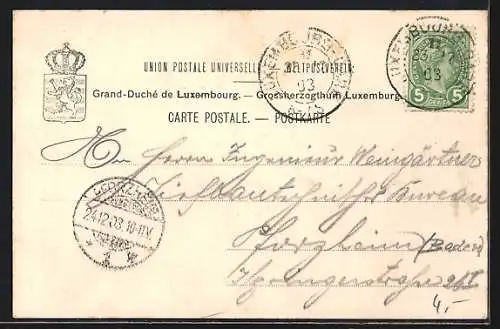 UNION POSTALE UNIVERSELLE. WELTPOSTVEREIN.
Grand-Duché de Luxembourg. — Grossherzogthum Luxemburg.
CARTE POSTALE. — POSTKARTE
LUXEMBOURG
03
LUXEMBOURG
03
5 5
Herrn Ingenieur Weingärtner
Bureau
Pforzheim (Baden)
24.12.03.10-11V.
4,-